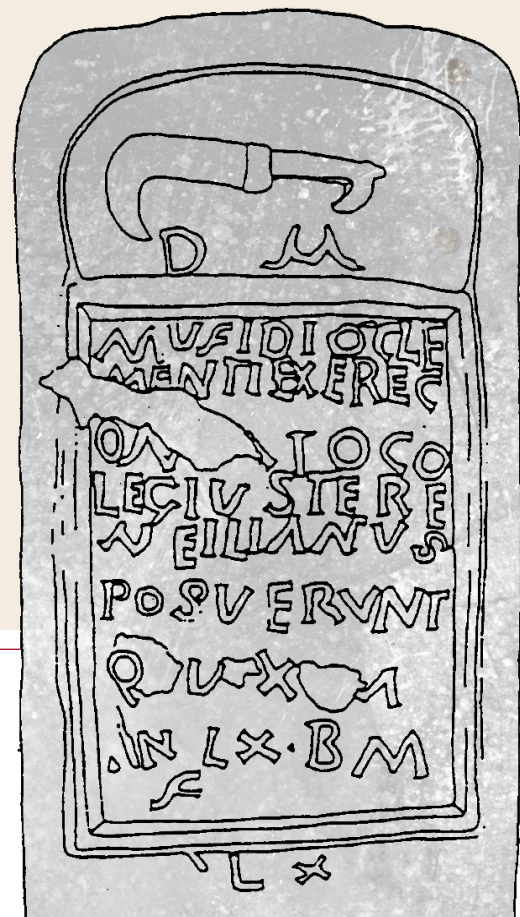 D M
MUFIDIOCLE
MENTIEXEREC
ON IOCO
LECIU STERE
NEILIANUS
POSUERUNT
IN LX·BM
F
LX